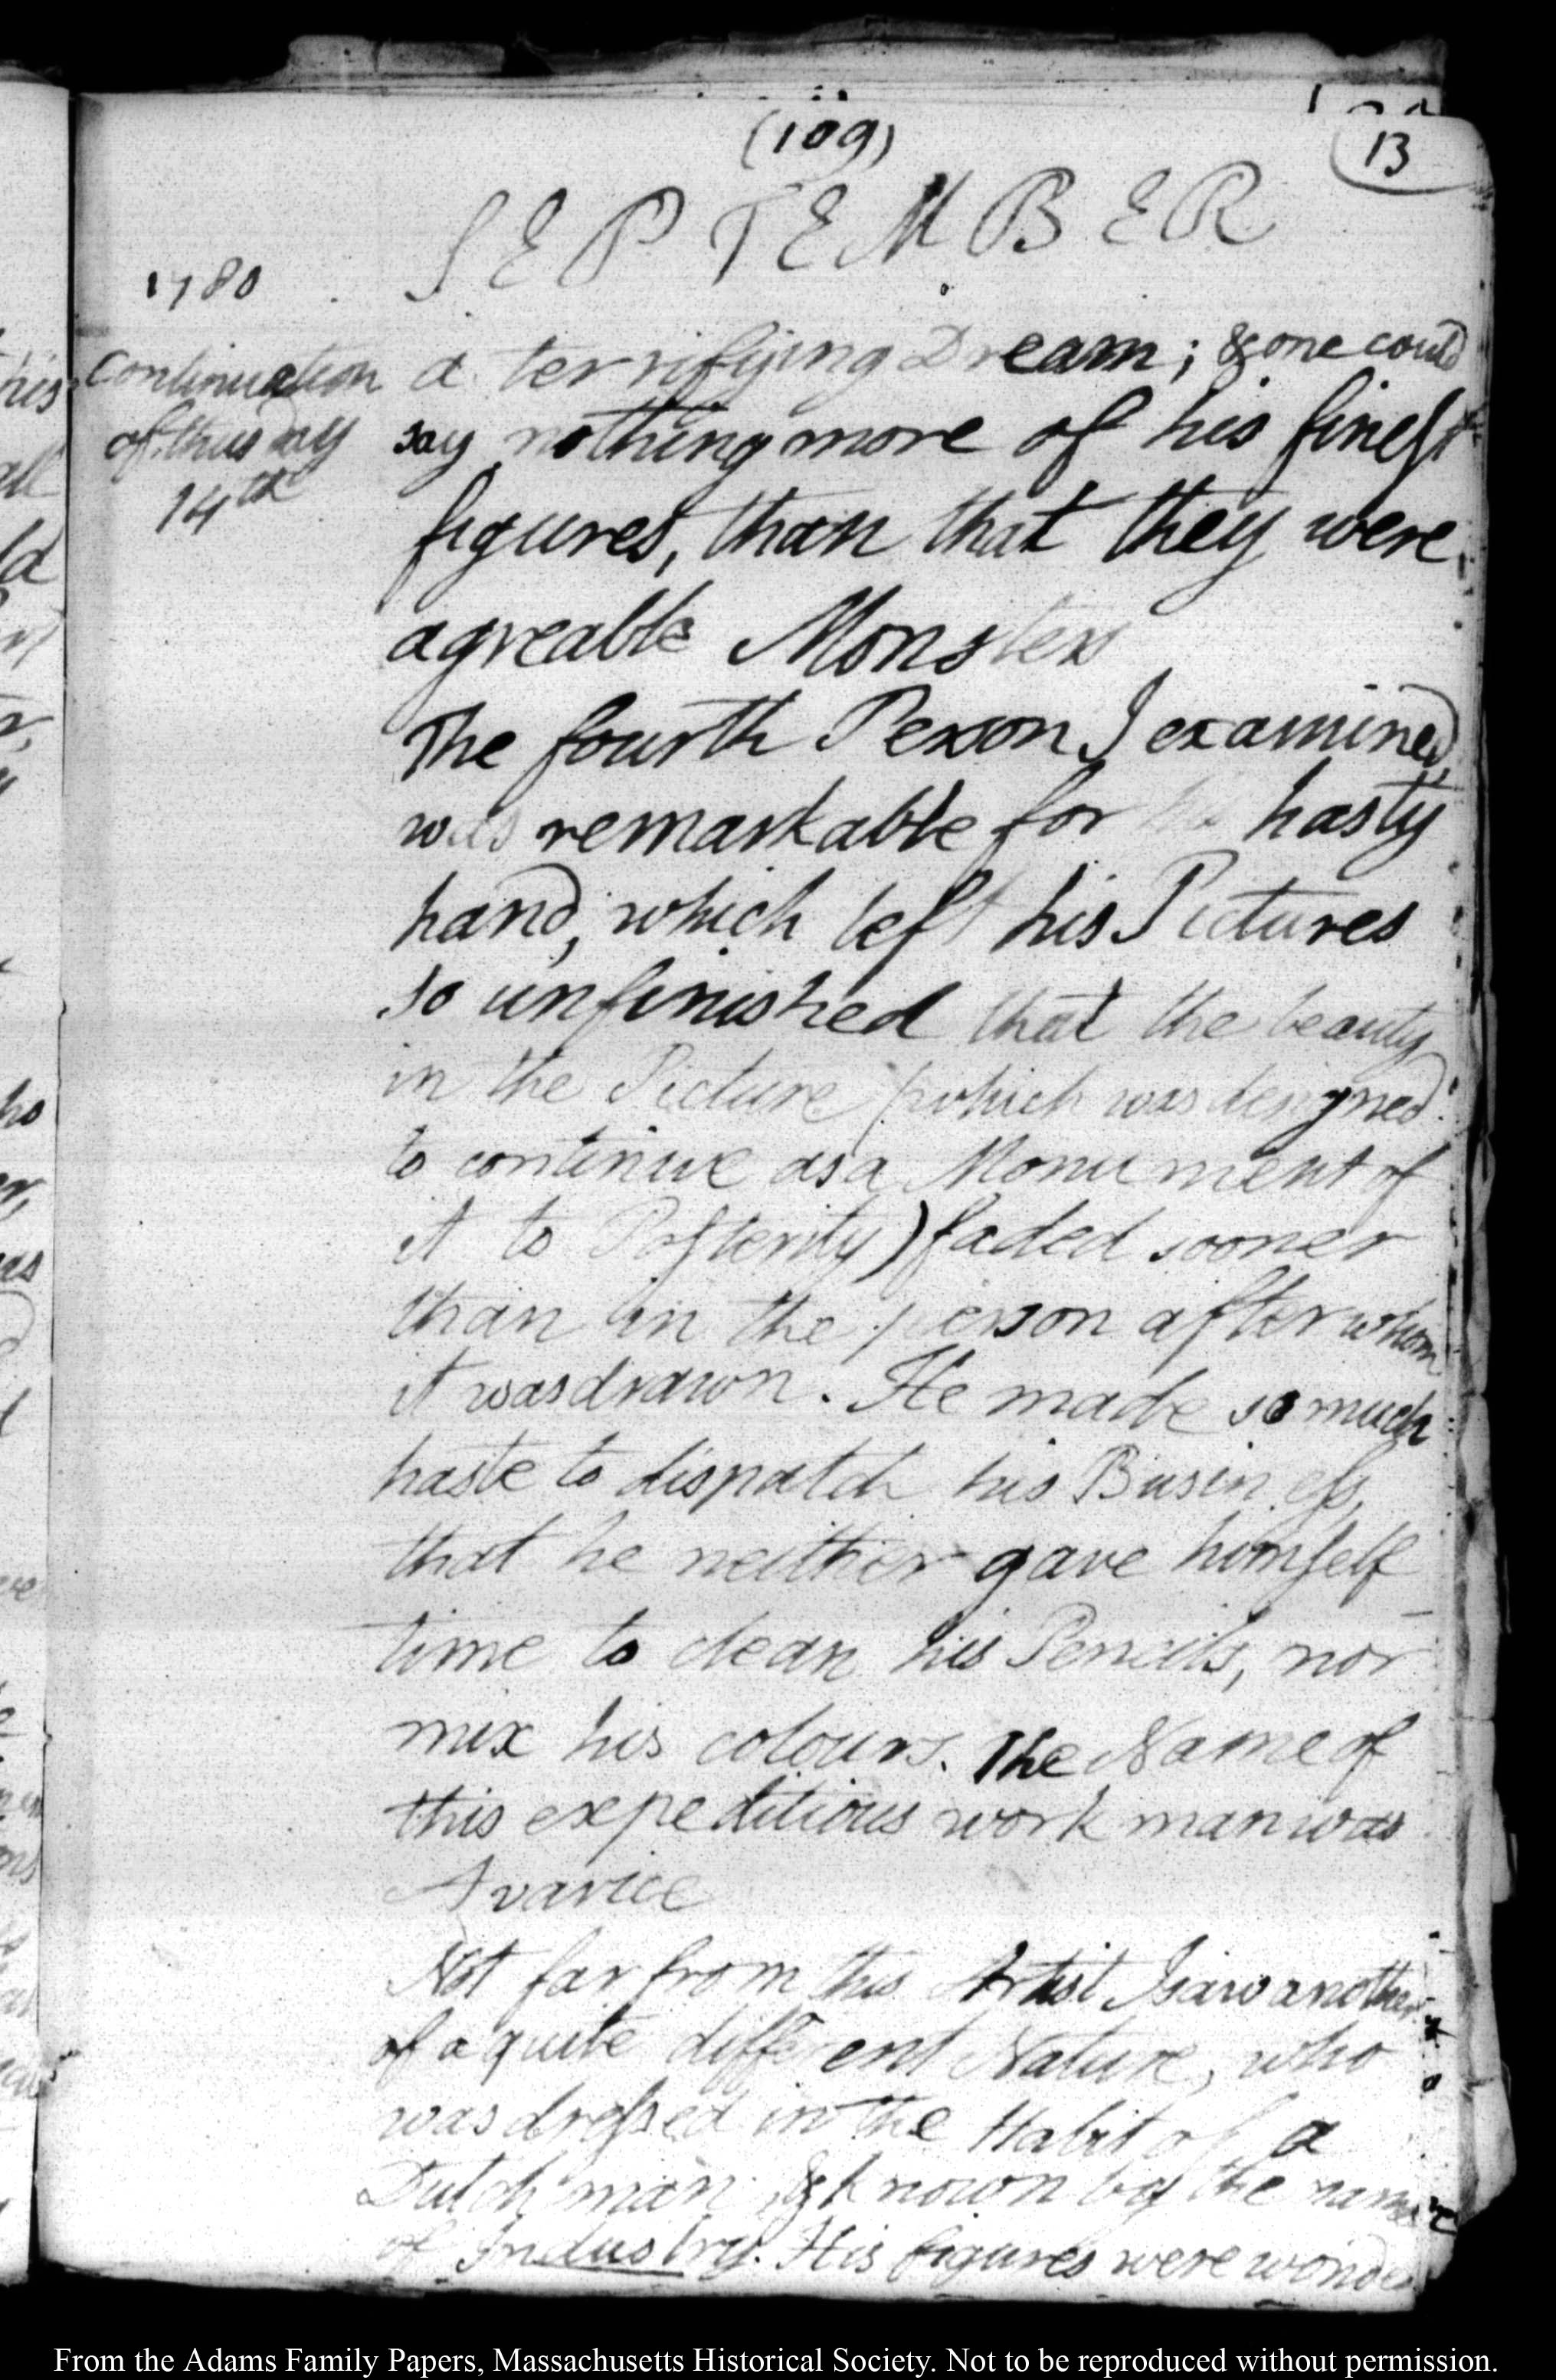 (109)
13
SEPTEMBER
1780
Continuation
of thursday
14th
a terrifying Dream; & one could
say nothing more of his finest
figures, than that they were
agreable Monsters
The fourth Person I examined,
was remarkable for his hasty
hand, which left his Pictures
so unfinished that the beauty
in the Picture (which was designed
to continue as a Monument of
it to Posterity) faded sooner
than in the person after whom
it was drawn. He made so much
haste to dispatch his Business,
that he neither gave himself
time to clean his Pencils, nor
mix his colours. The Name of
this expeditious workman was
Avarice
Not far from this Artist I saw another
of a quite different Nature, who
was dressed in the Habit of a
Dutchman & known by the name
of Industry. His figures were wonder
From the Adams Family Papers, Massachusetts Historical Society. Not to be reproduced without permission.